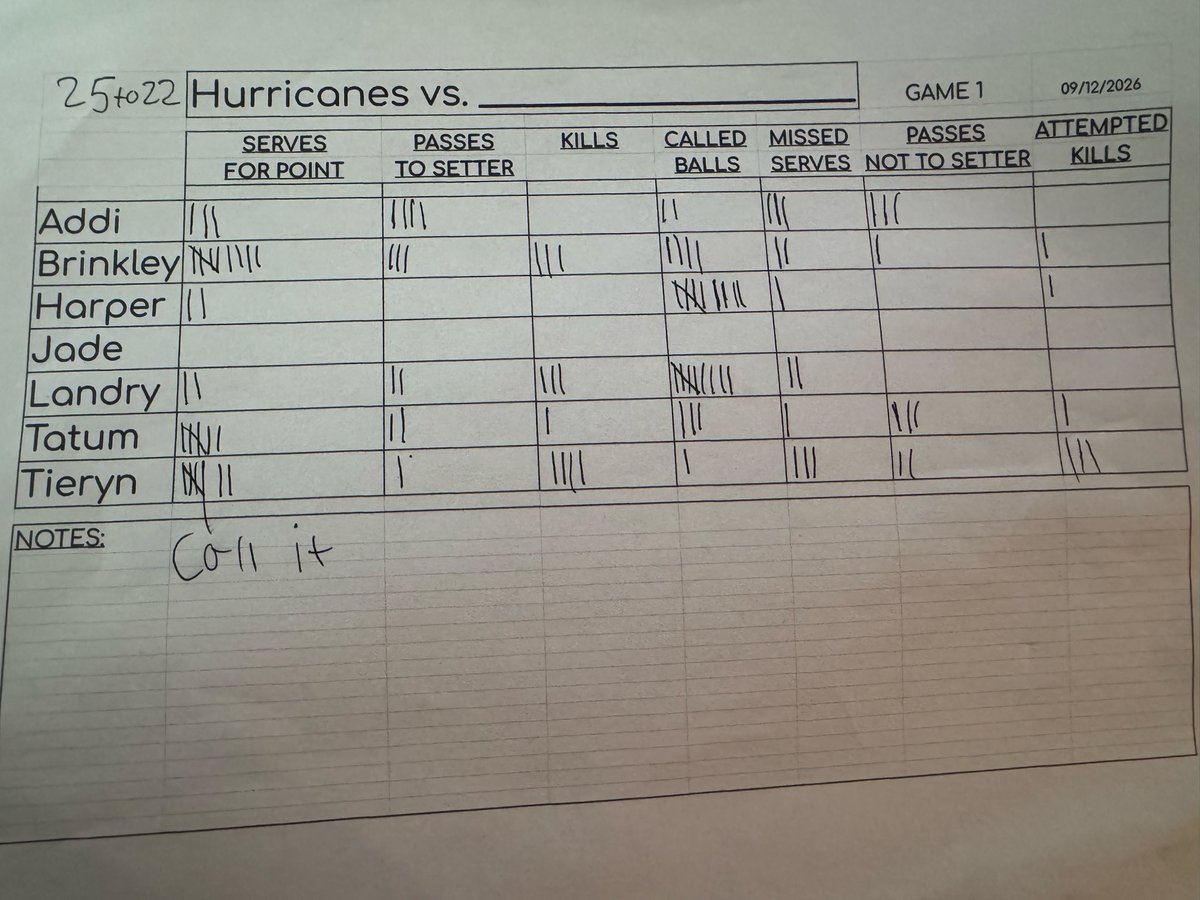 25 to 22 Hurricanes vs. ____________ GAME 1 09/12/2026
SERVES FOR POINT PASSES TO SETTER KILLS CALLED BALLS MISSED SERVES PASSES NOT TO SETTER ATTEMPTED KILLS
Addi ||| |||| || ||| |||
Brinkley 𝍸 |||| ||| ||| |||| || | |
Harper || 𝍸 |||| | |
Jade
Landry || || ||| 𝍸 |||| ||
Tatum 𝍸 | || | ||| | ||| |
Tieryn 𝍸 || | |||| | ||| || ||||
NOTES:
Call it